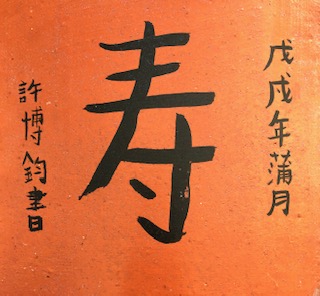 戊戌年蒲月
寿
許博鈞書日